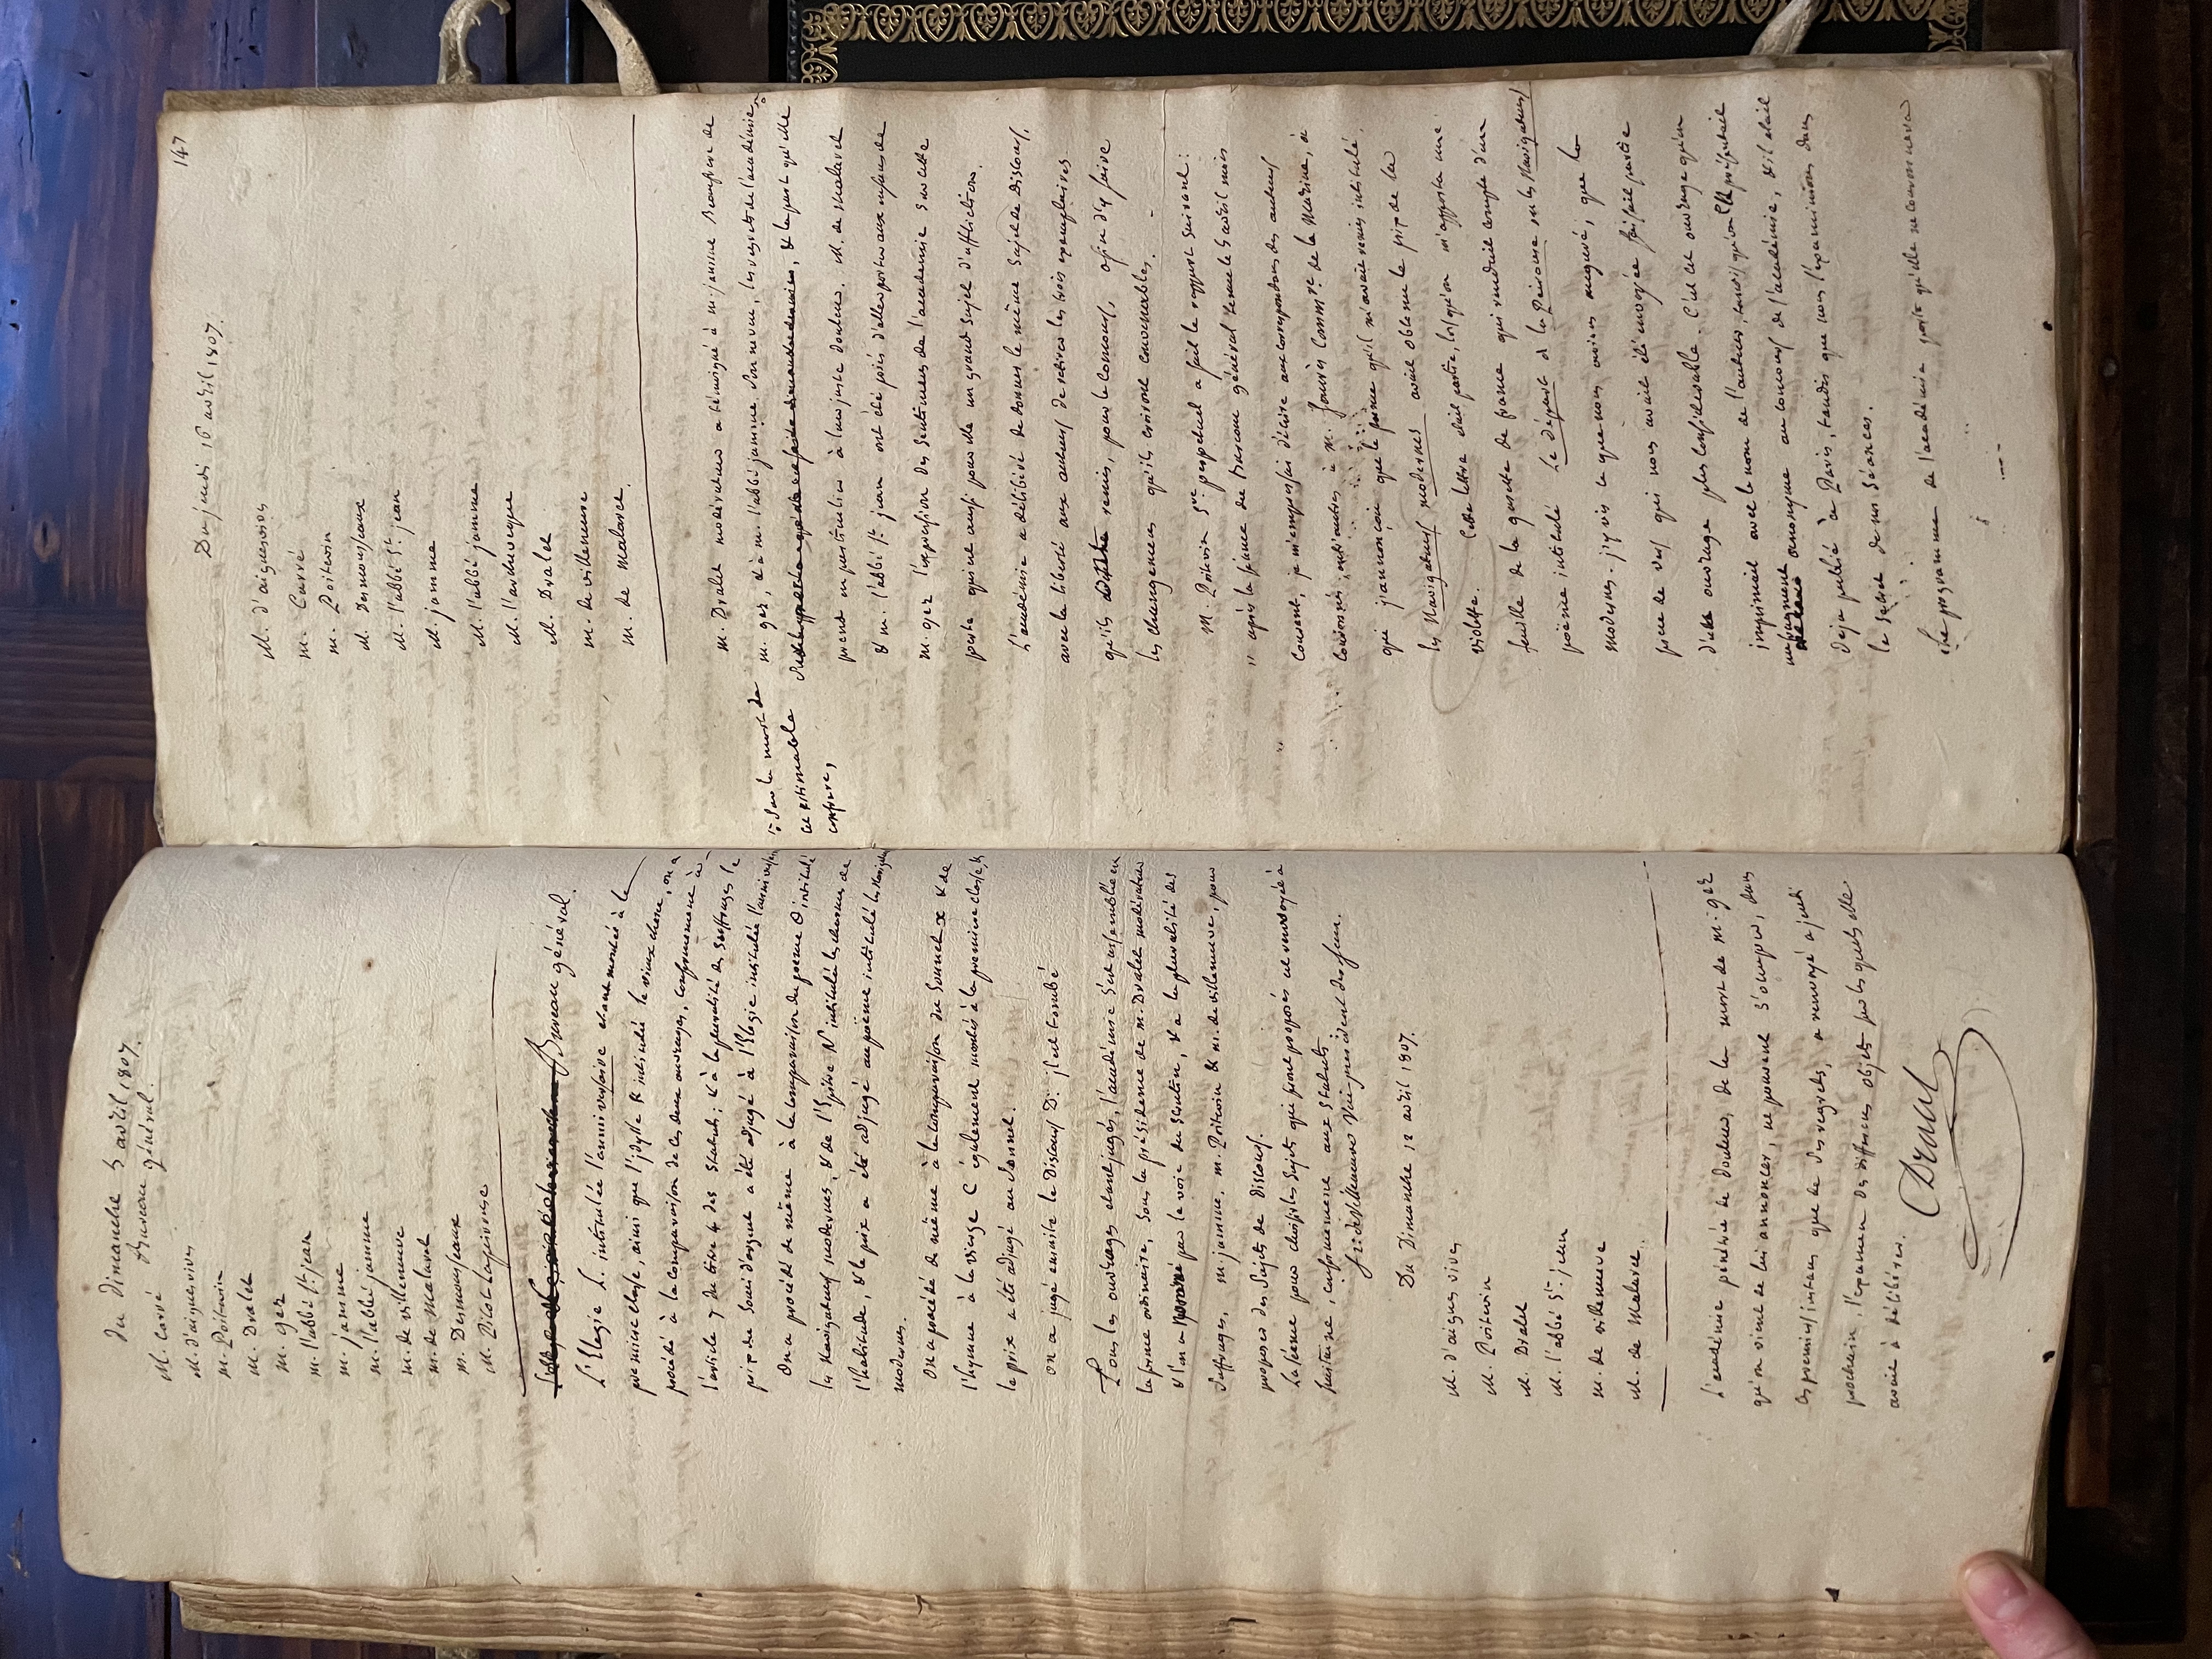 du Dimanche 5 avril 1807.
Bureau général.
M. Carré
M. d'aiguesvives
M. Poitevin
M. Dralet
M. gez
M. l'abbé St. jean
M. jamme
M. l'abbé jamme
M. de villeneuve
M. de Malaret
M. Desmousseaux
M. Picot Lapeirouse
Bureau général.
L'Elegie L. intitulée l'anniversaire étant montés à la
première classe, ainsi que l'idylle R intitulée le vieux chene, on a
procédé à la comparaison de ces deux ouvrages, conformement à
l'article 7 du titre 4 des Statuts; et à la pluralité des suffrages le
prix de Souci d'argent a été adjugé à l'Elegie intitulée l'anniversaire
On a procédé de même à la comparaison du poeme O intitulé
les Navigateurs modernes, & de l'Epitre N intitulée les charmes de
l'habitude, & le prix a été adjugé au poëme intitulé les Navigateurs
modernes.
On a procédé de même à la comparaison du Sonnet x & de
l'hymne à la vierge C également montés à la premiere classe, &
le prix a été adjugé au Sonnet.
on a jugé ensuite le Discours D: il est tombé
Tous les ouvrages étant jugés, l'académie s'est assemblée en
la forme ordinaire, sous la présidence de M. Dralet modérateur
& l'on a par la voie du Scrutin, & à la pluralité des
Suffrages, M. jamme, M. Poitevin & M. de villeneuve, pour
proposer des Sujets de Discours.
La séance pour choisir les Sujets qui seront proposés est renvoyée à
huitaine, conformement aux Statuts
de villeneuve vice-president
Du Dimanche 12 avril 1807.
M. d'aigues vives
M. Poitevin
M. Dralet
M. l'abbé St. jean
M. de villeneuve
M. de Malaret.
L'académie pénétrée de douleur, de la mort de M. gez
qu'on vient de lui annoncer, ne pouvant s'occuper, dans
ces premiers instans que de ses regrets, a renvoyé à jeudi
prochain, l'examen des differens objets sur lesquels elle
avait à délibérer.
Dralet
147
Du jeudi 16 avril 1807.
M. d'aiguesvives
M. Carré
M. Poitevin
M. Desmousseaux
M. l'abbé St. jean
M. jamme
M. l'abbé jamme
M. l'archeveque
M. Dralet
M. de villeneuve
M. de Malaret.
M. Dralet modérateur a témoigné à M. jamme Beaufrere de
M. gez, & à M. l'abbé jamme son neveu, les regrets de l'académie
sur la mort de
cet estimable
confrere,
& la part qu'elle
prend en particulier à leur juste douleur. M. de Malaret
& M. l'abbé St. jean ont été priés d'aller porter aux enfans de
M. gez l'expression des Sentimens de l'académie sur cette
perte qui est aussi pour elle un grand sujet d'affliction.
L'académie a délibéré de donner le même Sujet de Discours,
avec la liberté aux auteurs de retirer les trois exemplaires
qu'ils remis, pour le Concours, afin d'y faire
les changemens qu'ils croiront convenables.
M. Poitevin Sre perpetuel a fait le rapport suivant:
" après la séance du Bureau général tenue le 5 avril mois
courant, je m'empressai d'écrire aux correspondans des auteurs
couronnés, entr'autres à M. Jouvès Commre. de la Marine, à
qui j'annonçai que le poeme qu'il m'avait remis intitulé
les Navigateurs modernes avait obtenu le prix de la
violette. Cette lettre était partie, lorsqu'on m'apporta une
feuille de la gazette de france qui rendait compte d'un
poëme intitulé Le départ de la Peirouse ou les Navigateurs
modernes. j'y vis ce que nous avions auguré, que la
piece de vers qui nous avait été envoyée faisait partie
d'un ouvrage plus considérable. C'est un ouvrage qu'on
imprimait avec le nom de l'auteur, tandis qu'on le présentait
anonyme au concours de l'académie, & il était
déja publié à Paris, tandis que nous l'examinions dans
le Secret de nos Séances.
Le programme de l'académie porte qu'elle ne couronnera